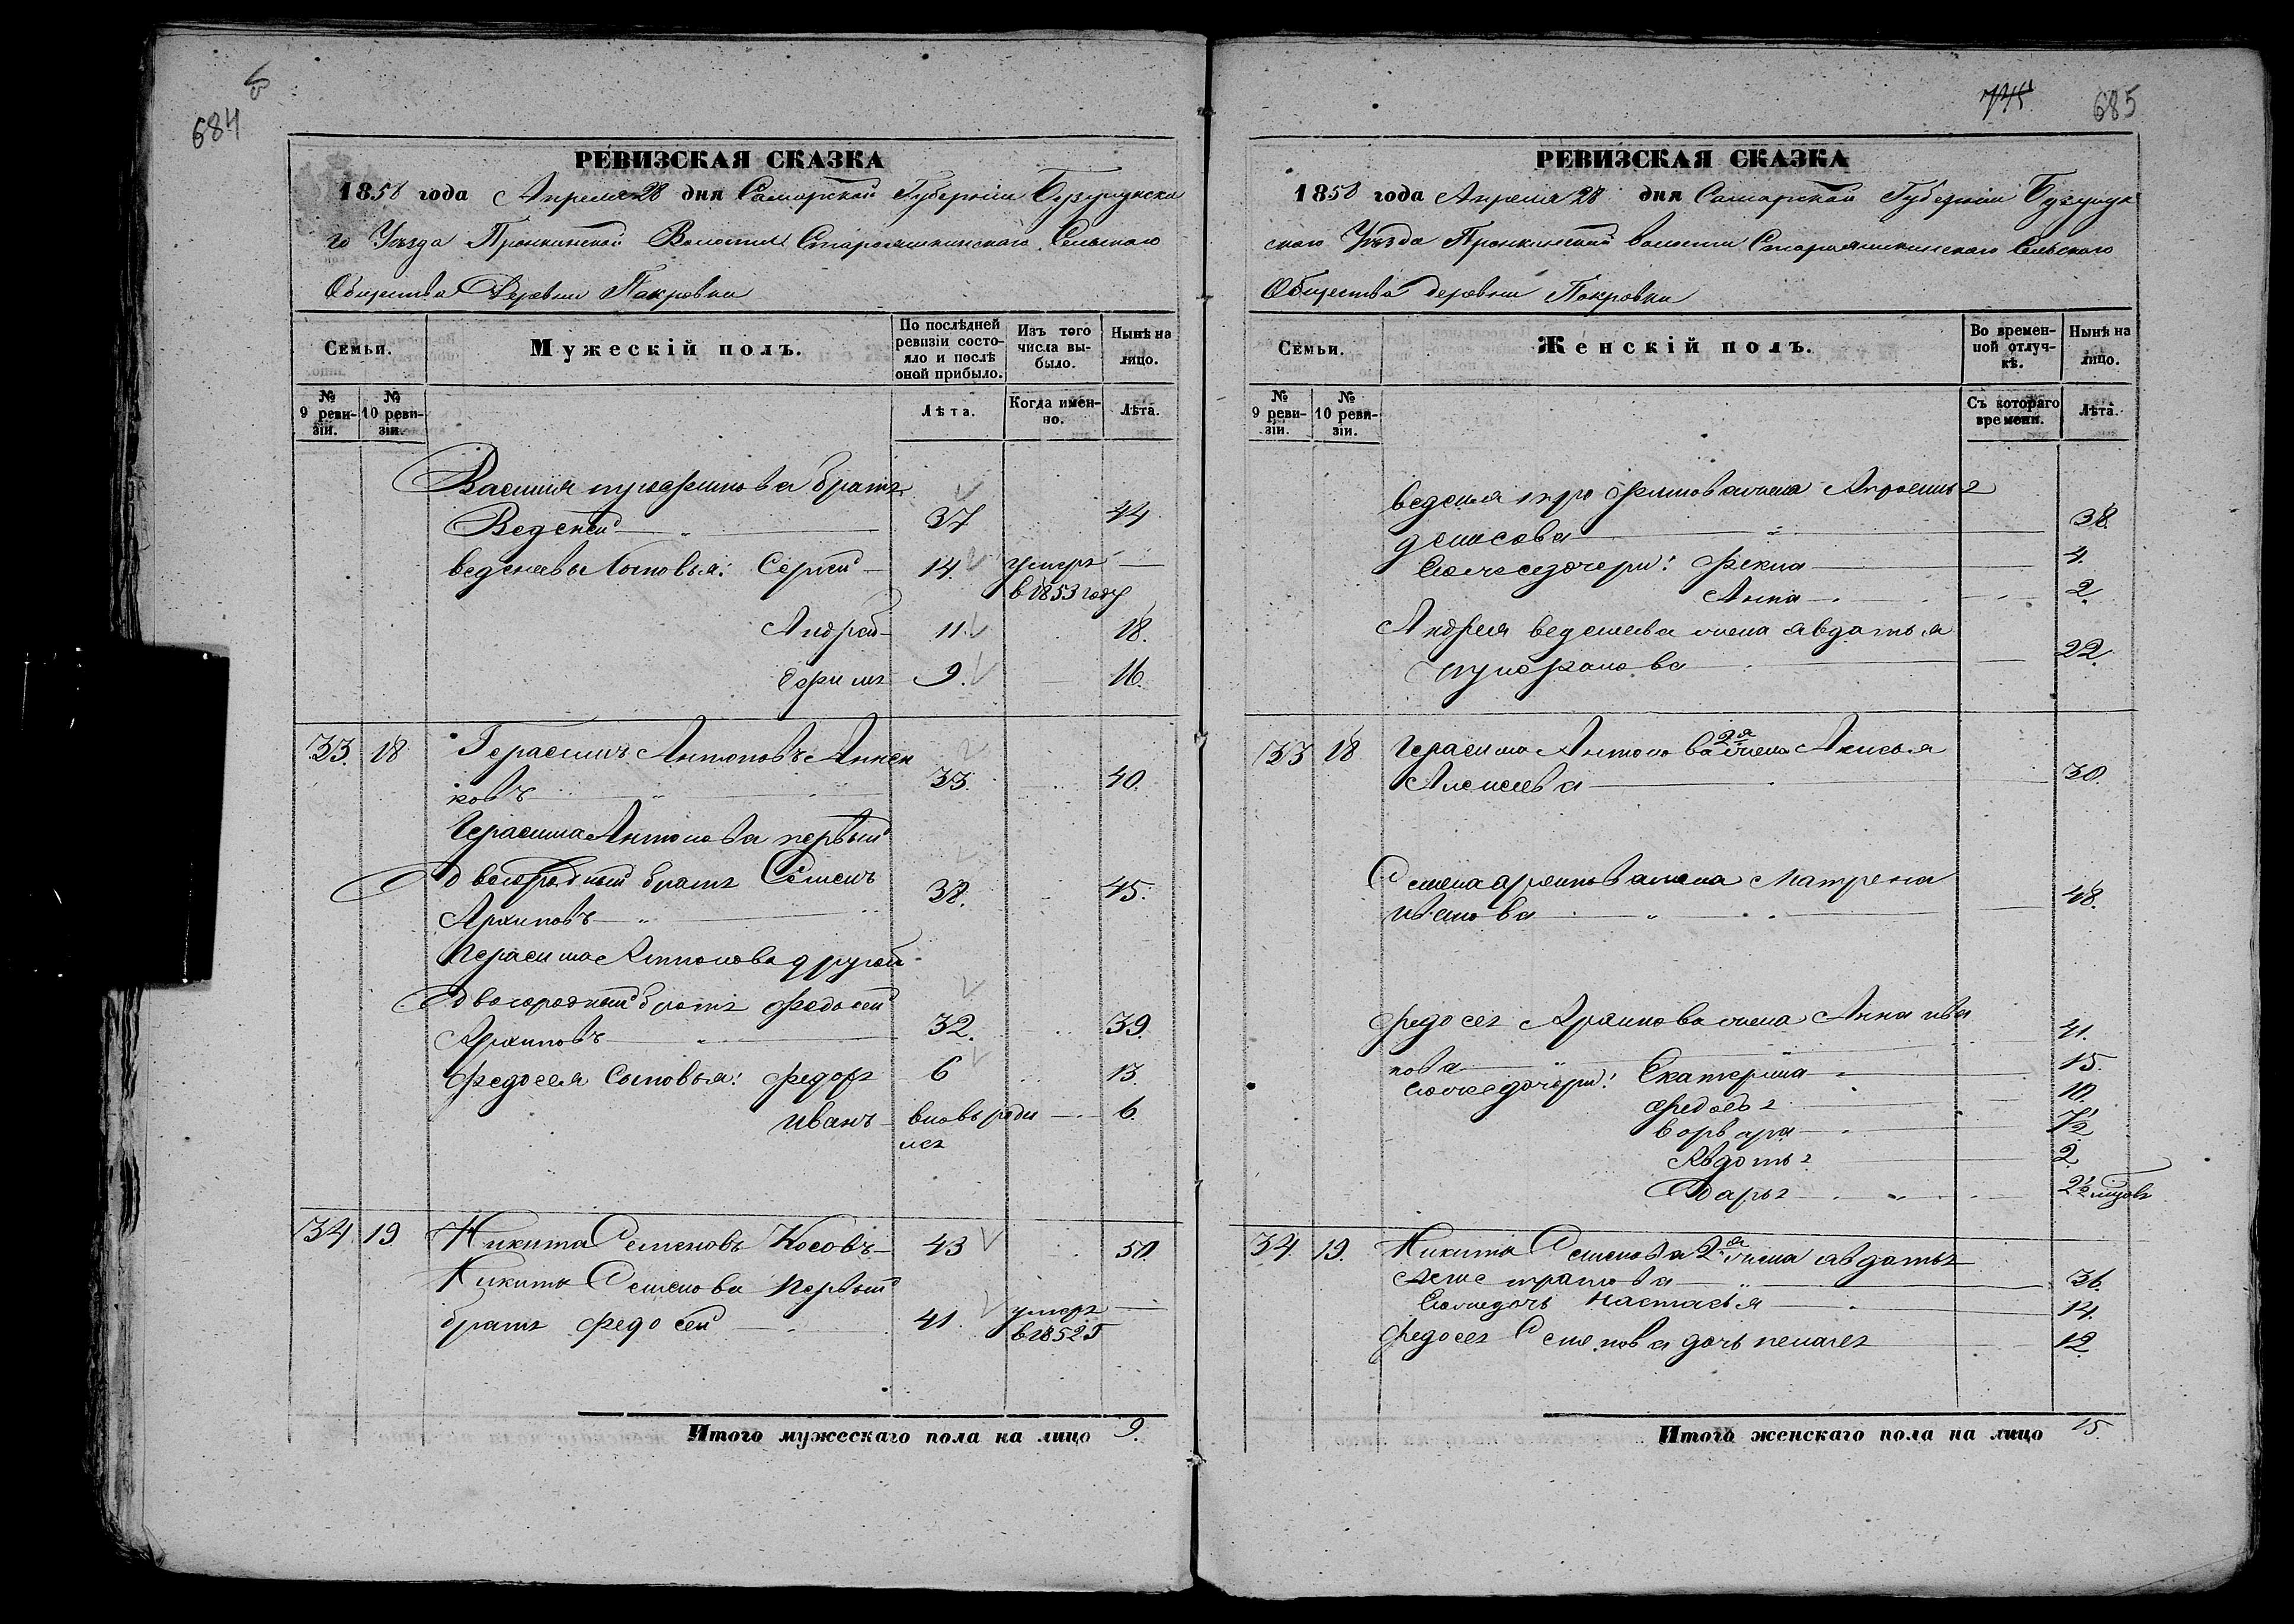 684
РЕВИЗСКАЯ СКАЗКА
1858 года Апреля 28 дня Самарской Губернiи Бузулукска
го Уѣзда Пронкинской Волости Староашкинскаго Сельскаго
Общества Деревни Пакровки
Семьи.
Мужескiй полъ.
По послѣдней ревизiи состояло и послѣ оной прибыло.
Изъ того числа выбыло.
Нынѣ на лицо.
№ 9 ревизiи.
№ 10 ревизiи.
Лѣта.
Когда именно.
Лѣта.
Василия трофимова братъ
Веденей 37 44
веденеевы Сыновья: Сергей 14. умеръ
в 1853 году
Андрей 11. 18.
Ефимъ 9. 16.
33. 18 Герасимъ Антоновъ Аннен
ковъ 33. 40.
Герасима Антонова первый
двоюродный братъ Семенъ
Архиповъ 38. 45.
Герасима Антонова другой
двоюродный братъ Федосей
Архиповъ 32. 39.
Федосея Сыновья: Федоръ 6 13.
Иванъ вновь роди 6.
лсь
34 19 Никита Семеновъ Косовъ 43 50.
Никиты Семенова Первый
братъ Федосей 41. умеръ
в 1852 г
Итого мужескаго пола на лицо 9.
745
685
РЕВИЗСКАЯ СКАЗКА
1858 года Апреля 28 дня Самарской Губернiи Бузулук
скаго Уѣзда Пронкинской волости Староашкинскаго Сельскаго
Общества деревни Покровки
Семьи.
Женскiй полъ.
Во временной отлучкѣ.
Нынѣ на лицо.
№ 9 ревизiи.
№ 10 ревизiи.
Съ котораго времени.
Лѣта.
веденея трофимова жена Апросинья
денисова 38.
Ево же дочери: Фекла 4.
Анна 2.
Андрея веденеева жена авдотья
22.
33 18 Герасима Антонова 2я жена Аксинья
Алексеева 30.
Семена архипова жена Матрена
Иванова 48.
Федосея Архипова жена Анна ива
нова 41.
Ево же дочери: Екатерина 15.
Федось 10.
ворвара 7 1/2
Авдоть 2
дарья 2 1/2
34. 19. Никиты Семенова 2я жена авдотья
36.
Ево же дочь настасья 14.
Федосея Семенова дочь пелагея 12.
Итого женскаго пола на лицо 15.